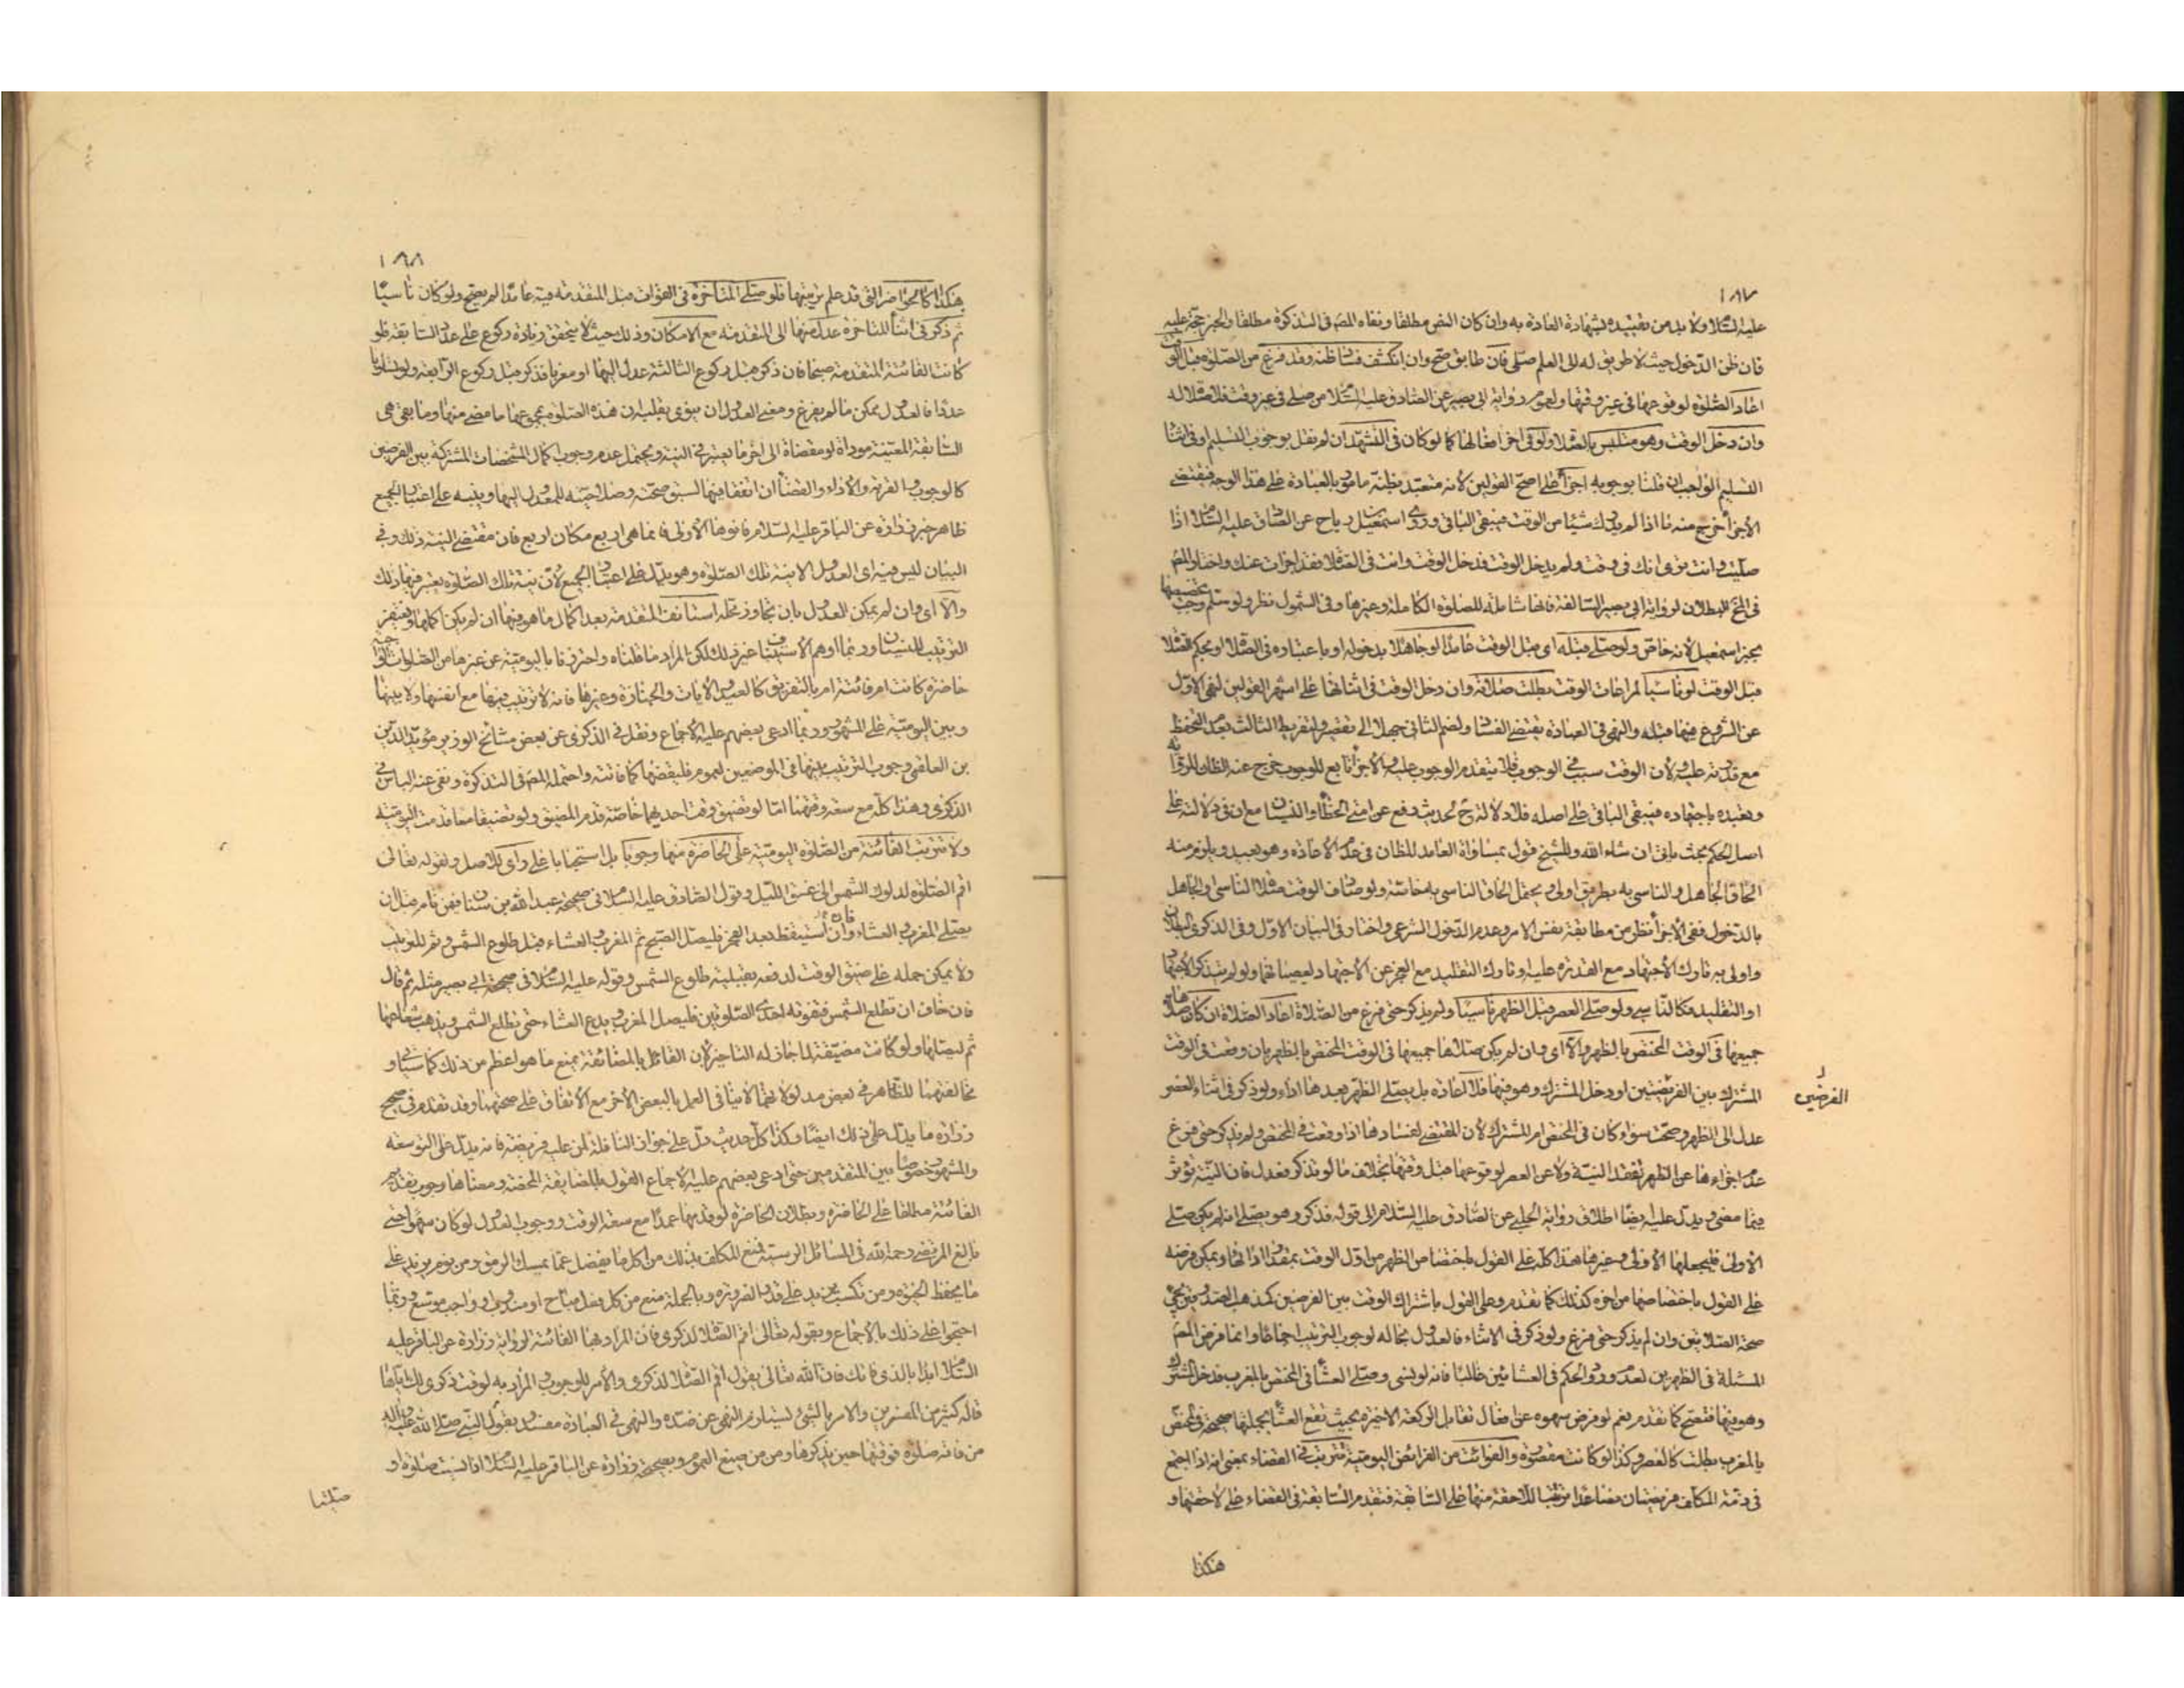 ١٨٧
عليه السلام ولا بد من تقييده بشهادة العادة به وان كان النص مطلقا ونفاه المص فى التذكرة مطلقا والخبر حجة عليه
فان ظن الدخول حيث لا طريق له الى العلم صلى فان طابق صح وان انكشف فساد ظنه وقد فرغ من الصلوة قبل الوقت
اعاد الصلوة لوقوعها فى غير وقتها ولعموم رواية ابى بصير عن الصادق عليه السلام من صلى فى غير وقت فلا صلاة له
وان دخل الوقت وهو متلبس بالصلاة ولو فى اخر افعالها كما لو كان فى التشهد ان لم نقل بوجوب التسليم او فى اثناء
التسليم الواجب ان قلنا بوجوبه اجزأ على اصح القولين لانه متعبد بظنه مأمور بالعبادة على هذا الوجه فيقتضى
الاجزاء خرج منه ما اذا لم يدرك شيئا من الوقت فيبقى الباقى وروى اسمعيل بن رباح عن الصادق عليه السلام اذا
صليت وانت ترى انك فى وقت ولم يدخل الوقت فدخل الوقت وانت فى الصلاة فقد اجزأت عنك واختار المص
فى المخ البطلان لرواية ابى بصير السالفة فانها شاملة للصلوة الكاملة وغيرها وفى الشمول نظر ولو سلم وجب تخصيصها
بخبر اسمعيل لانه خاص ولو صلى قبله اى قبل الوقت عامدا او جاهلا بدخوله او باعتباره فى الصلاة او بحكم الصلاة
قبل الوقت او ناسيا لمراعات الوقت بطلت صلاته وان دخل الوقت فى اثنائها على اشهر القولين لنهى الاول
عن الشروع فيها قبله والنهى فى العبادة يقتضى الفساد ولضم الثانى جهلا الى تقصير ولتفريط الثالث بعدم التحفظ
مع قدرته عليه ولان الوقت سبب فى الوجوب فلا يتقدم الوجوب عليه والاجزاء تابع للوجوب خرج عنه الظان للرواية
وتعبده باجتهاده فيبقى الباقى على اصله فلا دلالة ح لحديث رفع عن امتى الخطأ والنسيان مع ان فى دلالته على
اصل الحكم بحث يأتى ان شاء الله وللشيخ قول بمساواة العامد للظان فى عدم الاعادة وهو بعيد ويلزم منه
الحاق الجاهل والناسى به بطريق اولى ويحتمل الحاق الناسى به خاصة ولو صادف الوقت صلاة الناسى والجاهل
بالدخول ففى الاجزاء نظر من مطابقة نفس الامر وعدم الدخول الشرعى واختار فى البيان الاول وفى الذكرى البطلان
واولى به تارك الاجتهاد مع القدرة عليه وتارك التقليد مع العجز عن الاجتهاد لعصيانهما ولو لم يتذكر الاجتهاد
او التقليد فكالناسى ولو صلى العصر قبل الظهر ناسيا ولم يذكر حتى فرغ من الصلاة اعاد الصلاة ان كان صلاها
جميعها فى الوقت المختص بالظهر والا اى وان لم يكن صلاها جميعها فى الوقت المختص بالظهر بان وقعت فى الوقت
المشترك بين الفريضتين او دخل المشترك وهو فيها فلا اعادة بل يصلى الظهر بعدها اداء ولو ذكر فى اثناء العصر
الفرضين
عدل الى الظهر وصحت سواء كان فى المختص ام المشترك لان المقتضى لفسادها اذا وقعت فى المختص ولم يذكر حتى فرغ
عدم اجزاءها عن الظهر لفقد النية ولا عن العصر لوقوعها قبل وقتها بخلاف ما لو تذكر فعدل فان النية تؤثر
فيما مضى ويدل عليه ايضا اطلاق رواية الحلبى عن الصادق عليه السلام الى قوله فذكر وهو يصلى انه لم يكن صلى
الاولى فليجعلها الاولى وغيرها هذا كله على القول باختصاص الظهر من اول الوقت بمقدار ادائها ويمكن فرضه
على القول باختصاصها من اخره كذلك كما تقدم وعلى القول باشتراك الوقت بين الفرضين كمذهب الصدوق يتجه
صحة الصلاتين وان لم يذكر حتى فرغ ولو ذكر فى الاثناء فالعدول بحاله لوجوب الترتيب اجماعا وانما فرض المص
المسئلة فى الظهرين لعدم ورود الحكم فى العشائين غالبا فانه لو نسى وصلى العشاء فى المختص بالمغرب فدخل المشترك
وهو فيها فتصح كما تقدم نعم لو فرض سهوه عن افعال تقابل الركعة الاخيرة بحيث تقع العشاء بجملتها صحيحة فى المختص
بالمغرب بطلت كالعصر وكذا لو كانت مقصورة والفوائت من الفرائض اليومية تترتب فى القضاء بمعنى انه اذا اجتمع
فى ذمة المكلف فريضتان فصاعدا مرتبا للاحقة منها على السابقة فتقدم السابقة فى القضاء على لاحقتها و
هكذا
١٨٨
هكذا كالحواضر التى قد علم ترتيبها فلو صلى المتأخرة فى الفوات قبل المتقدمة فيه عامدا لم يصح ولو كان ناسيا
ثم ذكر فى اثناء المتاخرة عدل منها الى المتقدمة مع الامكان وذلك حيث لا يتحقق زيادة ركوع على عدد السابقة فلو
كانت الفائتة المتقدمة صبحا فان ذكر قبل ركوع الثالثة عدل اليها او مغربا فذكر قبل ركوع الرابعة ولو تساويا
عددا فالعدول ممكن ما لم يفرغ ومعنى العدول ان ينوى بقلبه ان هذه الصلوة مجموعها ما مضى منها وما بقى هى
السابقة المعينة موداة او مقضاة الى اخر ما يعتبر فى النية ويحتمل عدم وجوب اكمال المشخصات المشتركة بين الفرضين
كالوجوب والقربة والاداء والقضاء ان اتفقا فيها لسبق صحته وصلاحيته للمعدول اليها وينبه على اعتبار الجميع
ظاهر خبر زرارة عن الباقر عليه السلام فانوها الاولى فانما هى اربع مكان اربع فان مقتضى النية ذلك وفى
البيان ليس فيه اى العدول الا نية تلك الصلوة وهو يدل على اعتبار الجميع لان نية تلك الصلوة يعتبر فيها ذلك
والا اى وان لم يمكن العدول بان تجاوز محله استانف المتقدمة بعد اكمال ما هو فيها ان لم يكن اكملها ويغتفر
الترتيب للنسيان وربما اوهم الاستيناف غير ذلك لكن المراد ما قلناه واحترز باليومية عن غيرها من الصلوات الواجبة
حاضرة كانت ام فائتة ام بالتفريق كالعيد والايات والجنازة وغيرها فانه لا ترتيب فيها مع انفسها ولا بينها
وبين اليومية على المشهور وربما ادعى بعضهم عليه الاجماع ونقل فى الذكرى عن بعض مشائخ الوزير مؤيد الدين
بن العلقمى وجوب الترتيب بينها فى الموضعين لعموم فليقضها كما فاتته واحتمله المص فى التذكرة ونفى عنه الباس فى
الذكرى وهذا كله مع سعة وقتهما اما لو تضيق وقت احديهما خاصة قدم المضيق ولو تضيقا معا قدمت اليومية
ولا تترتب الفائتة من الصلوة اليومية على الحاضرة منها وجوبا بل استحبابا على راى للاصل ولقوله تعالى
اقم الصلوة لدلوك الشمس الى غسق الليل وقول الصادق عليه السلام فى صحيحة عبد الله بن سنان فيمن نام قبل ان
يصلى المغرب والعشاء وان استيقظ بعد الفجر فليصل الصبح ثم المغرب والعشاء قبل طلوع الشمس وثم للترتيب
ولا يمكن حمله على ضيق الوقت لدفعه بقبلية طلوع الشمس وقوله عليه السلام فى صحيحة ابى بصير مثله ثم قال
فان خاف ان تطلع الشمس فتفوته احدى الصلوتين فليصل المغرب ويدع العشاء حتى تطلع الشمس ويذهب شعاعها
ثم ليصلها ولو كانت مضيقة لما جاز له التاخير لان القائل بالمضائقة يمنع ما هو اعظم من ذلك كما سياتى و
مخالفتهما للظاهر فى بعض مدلولاتهما لا ينافى العمل بالبعض الاخر مع الاتفاق على صحتهما وقد تقدم فى صحيح
زرارة ما يدل على ذلك ايضا وكذا كل حديث دل على جواز النافلة لمن عليه فريضة فانه يدل على التوسعة
والمشهور خصوصا بين المتقدمين حتى ادعى بعضهم عليه الاجماع القول بالمضايقة المحضة ومعناها وجوب تقديم
الفائتة مطلقا على الحاضرة وبطلان الحاضرة لو قدمها عمدا مع سعة الوقت ووجوب العدول لو كان سهوا حتى
بالغ المرتضى رحمه الله فى المسائل الرسية فمنع المكلف بذلك من اكل ما يفضل عما يمسك الرمق ومن نوم يزيد على
ما يحفظ الحيوة ومن تكسب يزيد على قدر الضرورة وبالجملة منع من كل فعل مباح او مندوب او واجب موسع وربما
احتجوا على ذلك بالاجماع وبقوله تعالى اقم الصلاة لذكرى فان المراد بها الفائتة لرواية زرارة عن الباقر عليه
السلام ابدا بالذى فاتك فان الله تعالى يقول اقم الصلاة لذكرى والامر للوجوب والمراد به لوقت ذكرى
قاله كثير من المفسرين والامر بالشئ يستلزم النهى عن ضده والنهى فى العبادة مفسد وبقول النبى صلى الله عليه واله
من فاته صلوة فوقتها حين يذكرها ومن من صيغ العموم وبصحيحة زرارة عن الباقر عليه السلام اذا نسيت صلوة او
صليتها